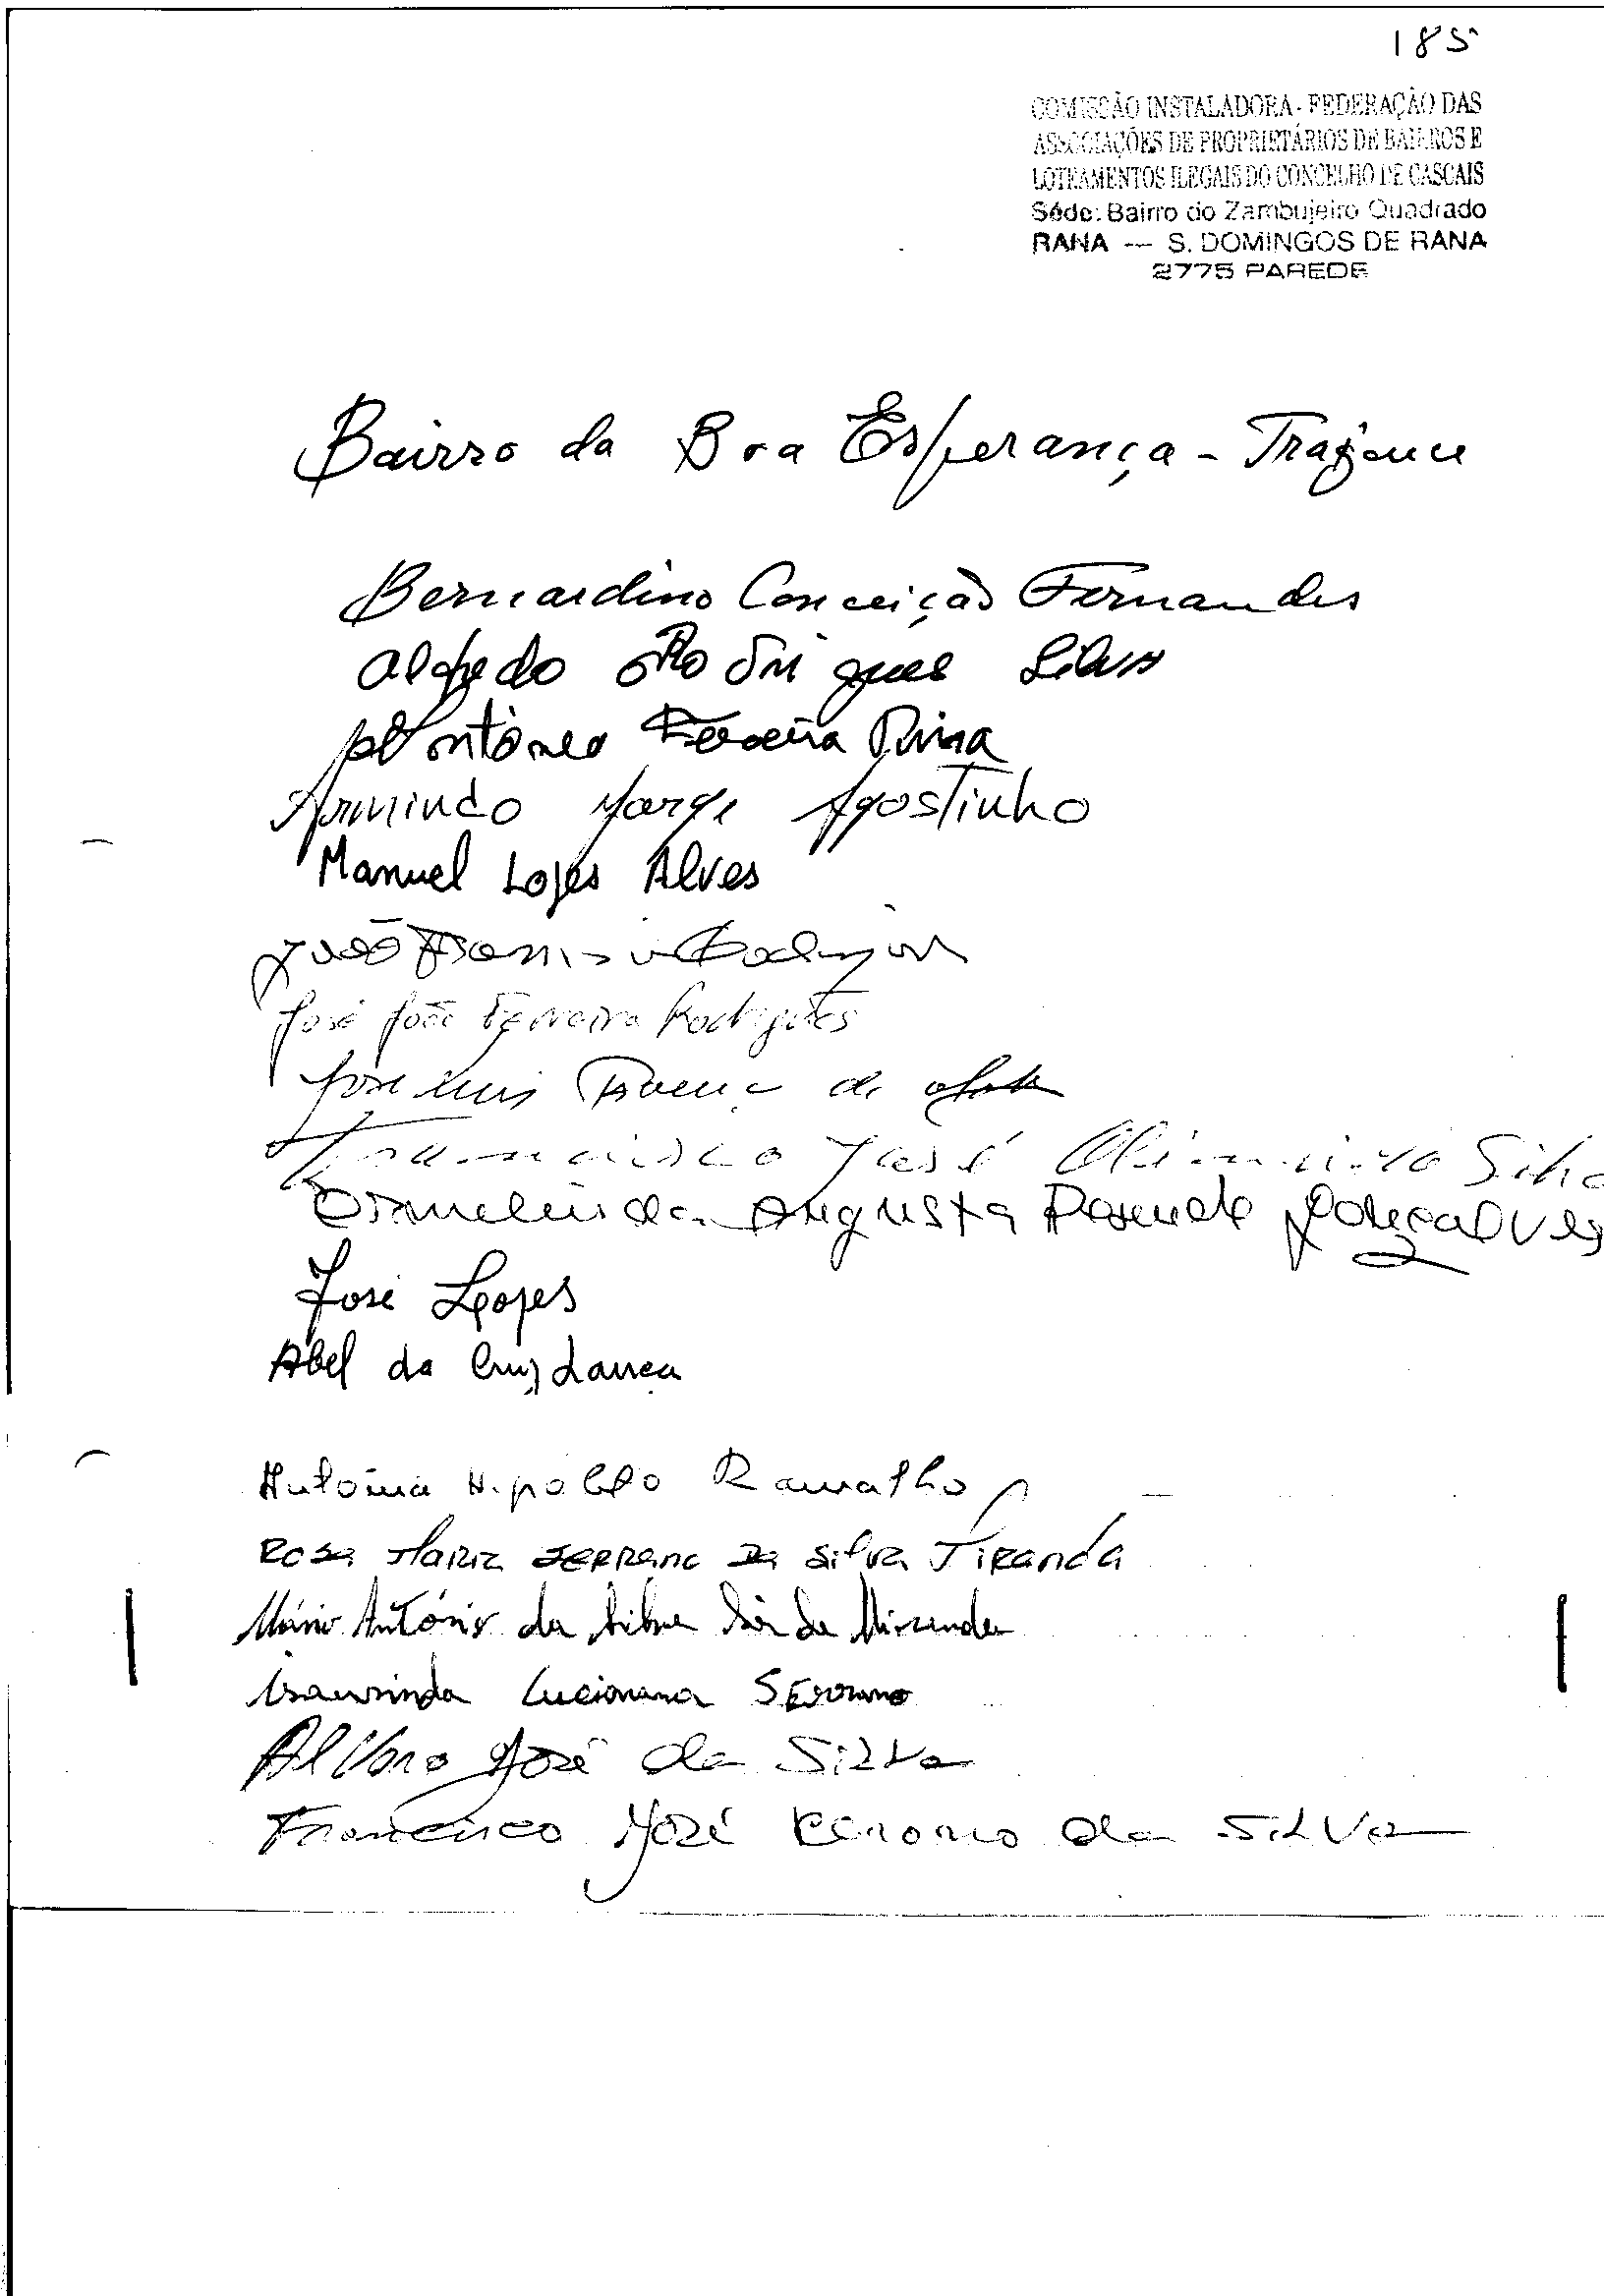 185
COMISSÃO INSTALADORA - FEDERAÇÃO DAS
ASSOCIAÇÕES DE PROPRIETÁRIOS DE BAIRROS E
LOTEAMENTOS ILEGAIS DO CONCELHO DE CASCAIS
Séde: Bairro do Zambujeiro Quadrado
RANA — S. DOMINGOS DE RANA
2775 PAREDE
Bairro da Boa Esperança - Trajouce
Bernardino Conceição Fernandes
Alfredo Rodrigues Silva
António Ferreira
Armindo Jorge Agostinho
Manuel Lopes Alves
João Rodrigues
José João Ferreira Rodrigues
José Luis de
Francisco José Silva
Augusta Gonçalves
José Lopes
Abel da Cruz Lança
Antónia Hipolito Ramalho
Rosa Maria Serrano da Silva Miranda
Mário António da Silva Sá de Miranda
Isaurinda Luciana Serrano
Alvaro José da Silva
Francisco José da Silva